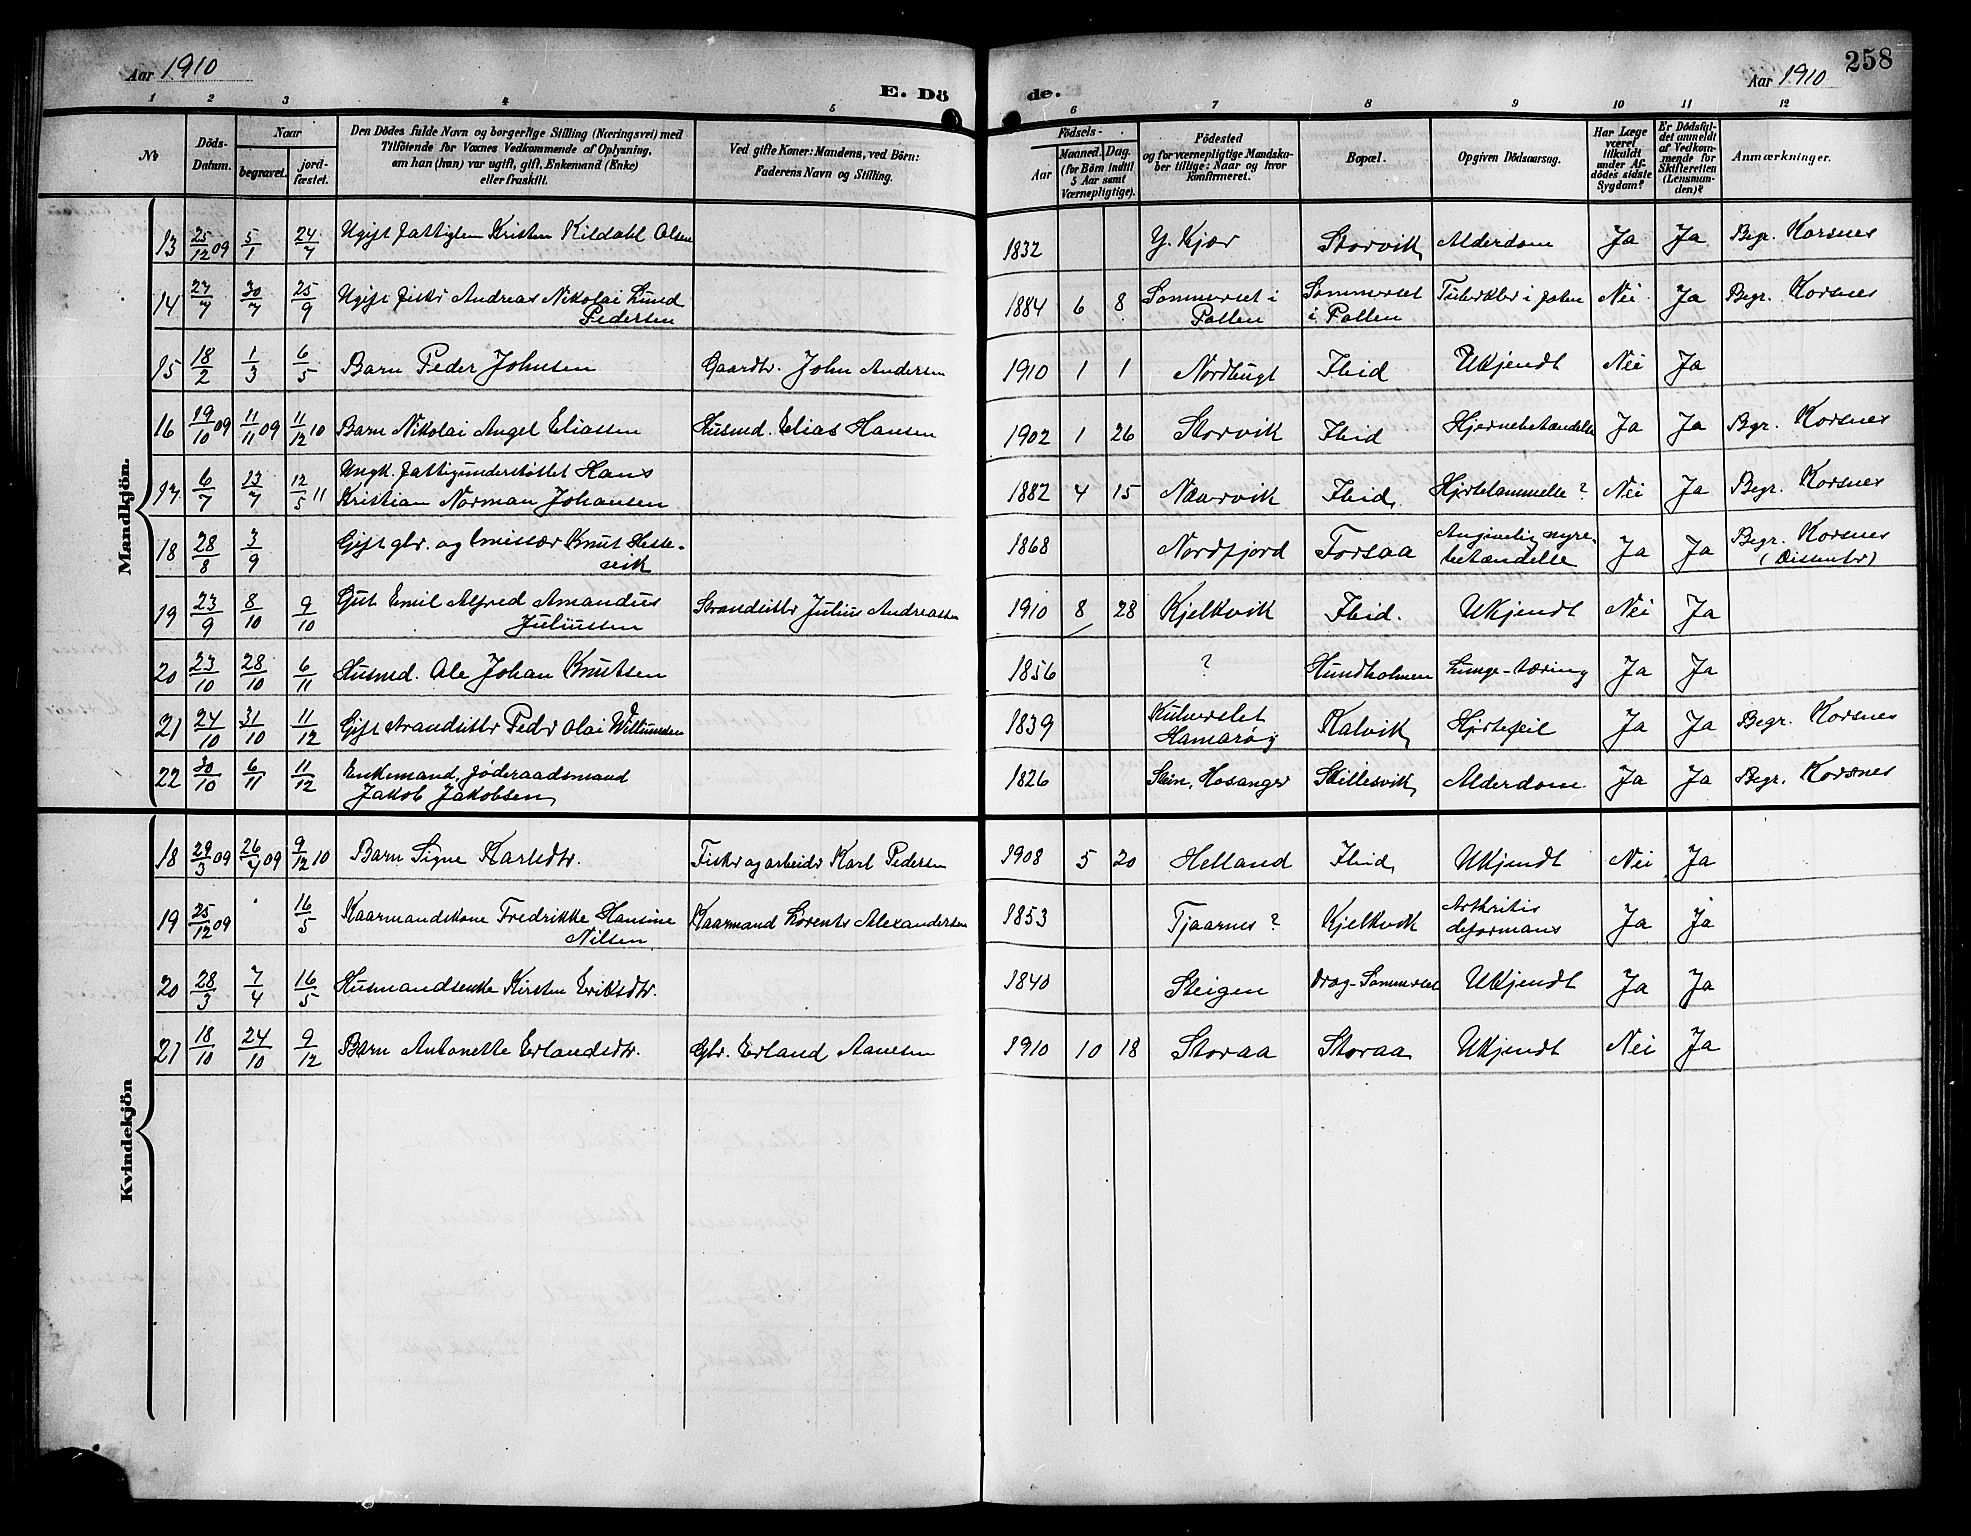 Aar 1910
E. Dö
de.
Aar 1910
258
1 2 3 4 5 6 7 8 9 10 11 12
No
Döds-
Datum.
Naar
begravet.
jord-
fæstet.
Den Dödes fulde Navn og borgerlige Stilling (Næringsvei) med
Tilföiende for Voxnes Vedkommende af Oplysning,
om han (hun) var ugift, gift, Enkemand (Enke)
eller fraskilt.
Ved gifte Koner: Mandens, ved Börn:
Faderens Navn og Stilling.
Födsels-
Aar
Maaned. Dag.
(for Börn indtil
5 Aar samt
Værnepligtige).
Födested
og for værnepligtige Mandska-
ber tillige: Naar og hvor
konfirmeret.
Bopæl.
Opgiven Dödsaarsag.
Har Læge
været
tilkaldt
under Af-
dödes sidste
Sygdom?
Er Dödsfal-
det anmeldt
af Vedkom-
mende for
Skifteretten
(Lensman-
den)?
Anmærkninger.
Mandkjön.
13 25/12 09 5/1 24/7 Ugift fattiglem Kristen Kildahl Olsen 1832 Y. Kjær Storvik Alderdom Ja Ja Begr. Korsnes
14 27/7 30/7 25/9 Ugift fiskr Andreas Nikolai Lund
Pedersen 1884 6 8 Sommerset i
Pollen Sommerset
i Pollen i foten Nei Ja Begr. Korsnes
15 18/2 1/3 6/5 Barn Peder Johnsen Gaardbr. John Andersen 1910 1 1 Nordbugt Ibid Ukjendt Nei Ja
16 19/10 09 11/11 09 11/12 10 Barn Nikolai Angel Eliassen Husmd. Elias Hansen 1902 1 26 Storvik Ibid Hjernebetændelse Ja Ja Begr. Korsnes
17 6/7 13/7 12/5 11 Ungk. fattigunderstöttet Hans
Kristian Norman Johansen 1882 4 15 Naarvik Ibid Hjertelammelse? Nei Ja Begr. Korsnes
18 28/8 3/9 Gift gbr. og Emissær Knut Heste-
vik 1868 Nordfjord Forsaa Angivelig nyre-
betændelse Ja Ja Begr. Korsnes
(Dissenter)
19 23/9 8/10 9/10 Gut Emil Alfred Amandus
Juliussen Strandsittr Julius Andreassen 1910 8 28 Kjelkvik Ibid. Ukjendt Nei Ja
20 23/10 28/10 6/11 Husmd. Ole Johan Knutsen 1856 ? Hundholmen Lunge-tæring Ja Ja
21 24/10 31/10 11/12 Gift strandsittr Pedr Olai Willumsen 1839
Hamarøy Kalvik Hjertefeil Ja Ja Begr. Korsnes
22 30/10 6/11 11/12 Enkemand, föderaadsmand
Jakob Jakobsen 1826 Stein, Hosanger Skillesvik Alderdom Ja Ja Begr. Korsnes
Kvindekjön
18 29/3 09 26/7 09 9/12 10 Barn Signe Karlsdtr. Fiskr og arbeidr Karl Pedersen 1908 5 20 Helland Ibid Ukjendt Nei Ja
19 25/12 09 16/5 Kaarmandskone Fredrikke Hansine
Nilsen Kaarmand Lorents Alexandersen 1853 Tjaarnes? Kjelkvik Arthritis
deformans Ja Ja
20 28/3 7/4 16/5 Husmandsenke Kirsten Eriksdtr. 1840 Steigen Drag-Sommerset Ukjendt Ja Ja
21 18/10 24/10 9/12 Barn Antonette Erlandsdtr. Gbr. Erland Aanesen 1910 10 18 Storaa Storaa Ukjendt Nei Ja